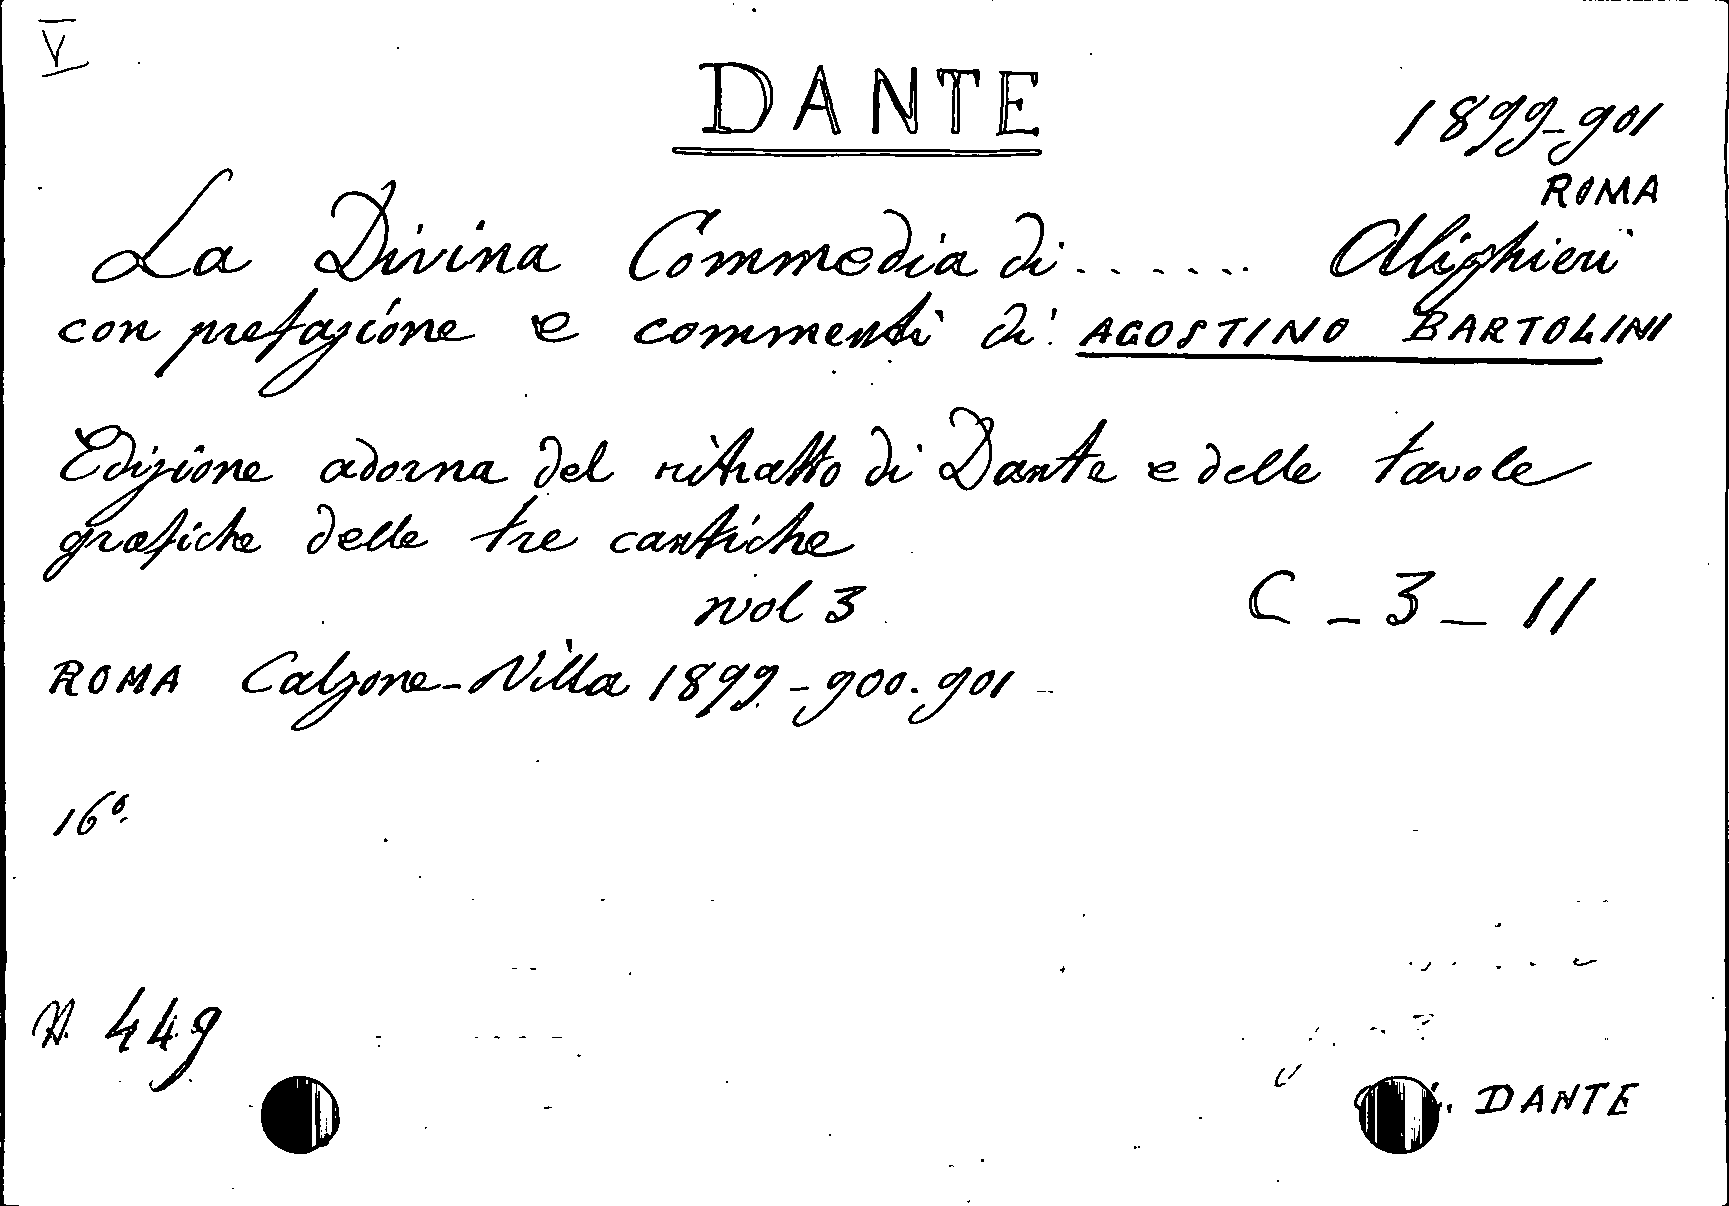 V
DANTE
1899-901
ROMA
La Divina Commedia di ...... Alighieri
con prefazione e commenti di AGOSTINO BARTOLINI
Edizione adorna del ritratto di Dante e delle tavole
grafiche delle tre cantiche
vol 3
C - 3 - 11
ROMA Calzone-Villa 1899-900.901
16°
N. 449
DANTE